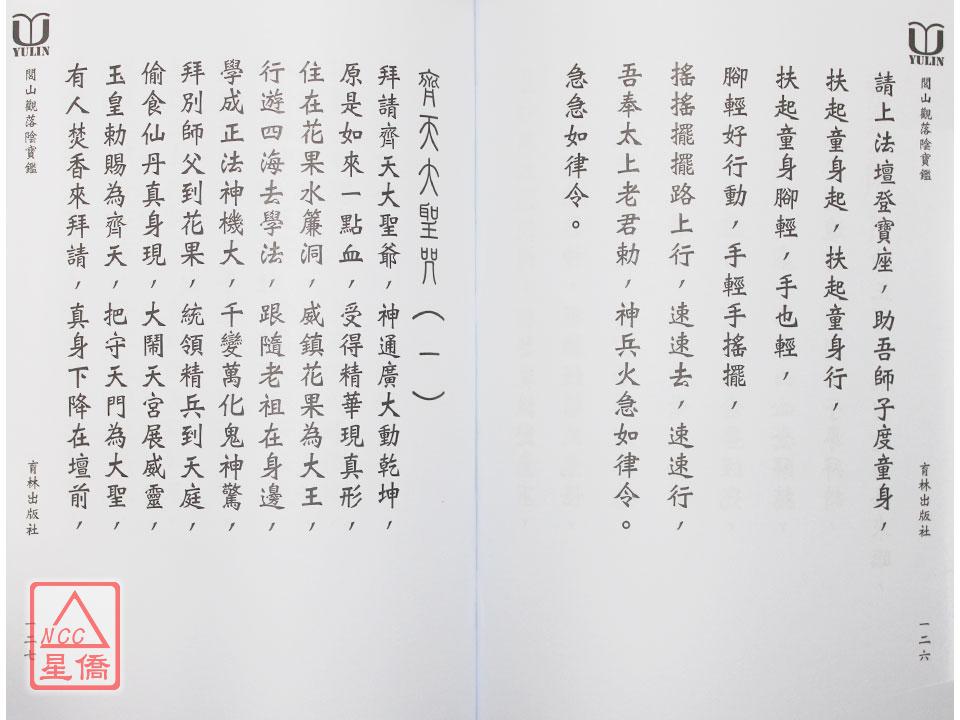 YULIN
閭山觀落陰寶鑑
育林出版社
一二六
請上法壇登寶座，助吾師子度童身，
扶起童身起，扶起童身行，
扶起童身腳輕，手也輕，
腳輕好行動，手輕手搖擺，
搖搖擺擺路上行，速速去，速速行，
吾奉太上老君勅，神兵火急如律令。
急急如律令。
齊天大聖咒（一）
拜請齊天大聖爺，神通廣大動乾坤，
原是如來一點血，受得精華現真形，
住在花果水簾洞，威鎮花果為大王，
行遊四海去學法，跟隨老祖在身邊，
學成正法神機大，千變萬化鬼神驚，
拜別師父到花果，統領精兵到天庭，
偷食仙丹真身現，大鬧天宮展威靈，
玉皇勅賜為齊天，把守天門為大聖，
有人焚香來拜請，真身下降在壇前，
YULIN
閭山觀落陰寶鑑
育林出版社
一二七
NCC
星僑